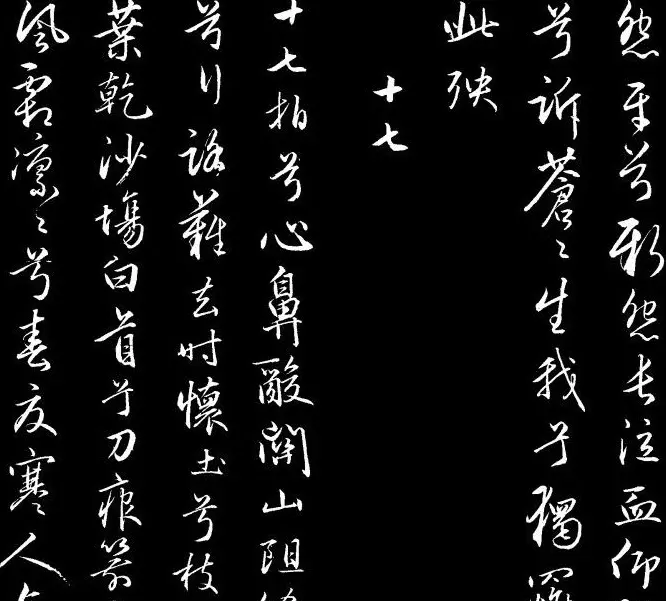 怨平兮新怨長泣血仰
兮訴蒼〻生我兮獨罹
此殃
十七
十七拍兮心鼻酸關山阻
兮行路難去時懷土兮枝
葉乾沙場白首兮刀痕箭
風霜凜〻兮春夏寒人